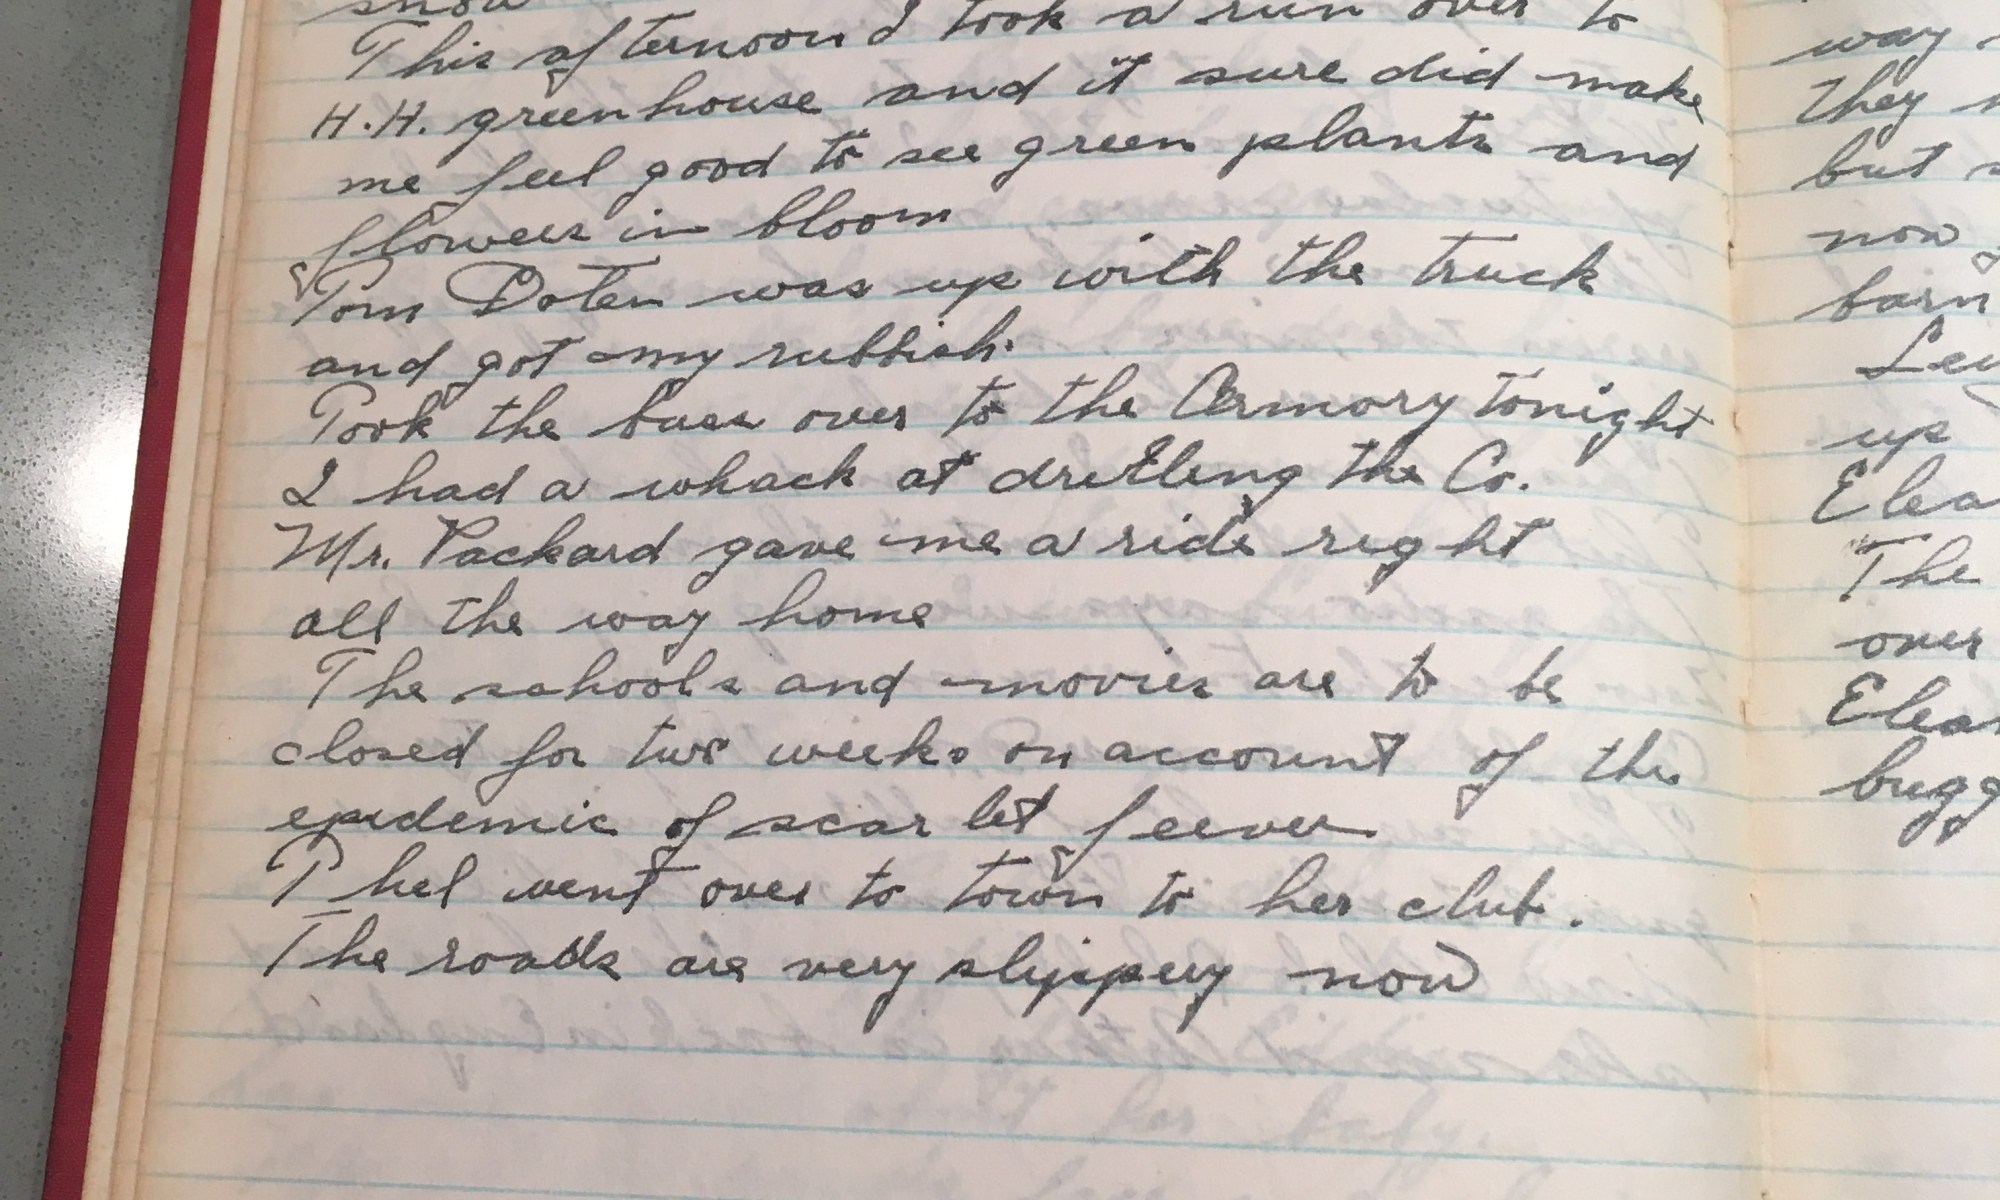 snow
This afternoon I took a run over to
H.H. greenhouse and it sure did make
me feel good to see green plants and
flowers in bloom
Tom Doten was up with the truck
and got my rubbish.
Took the buss over to the Armory tonight
I had a whack at drilling the Co.
Mr. Packard gave me a ride right
all the way home
The schools and movies are to be
closed for two weeks on account of the
epidemic of scarlet feever
Phel went over to town to her club.
The roads are very slippery now
way
they
but
now
barn
up
The
over